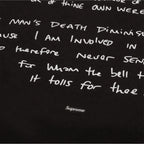 OF THINE OWN WERE
MAN'S DEATH DIMINIS
I AM INVOLVED IN
THEREFORE NEVER SEN
FOR WHOM THE BELL T
IT TOLLS FOR THEE
Supreme